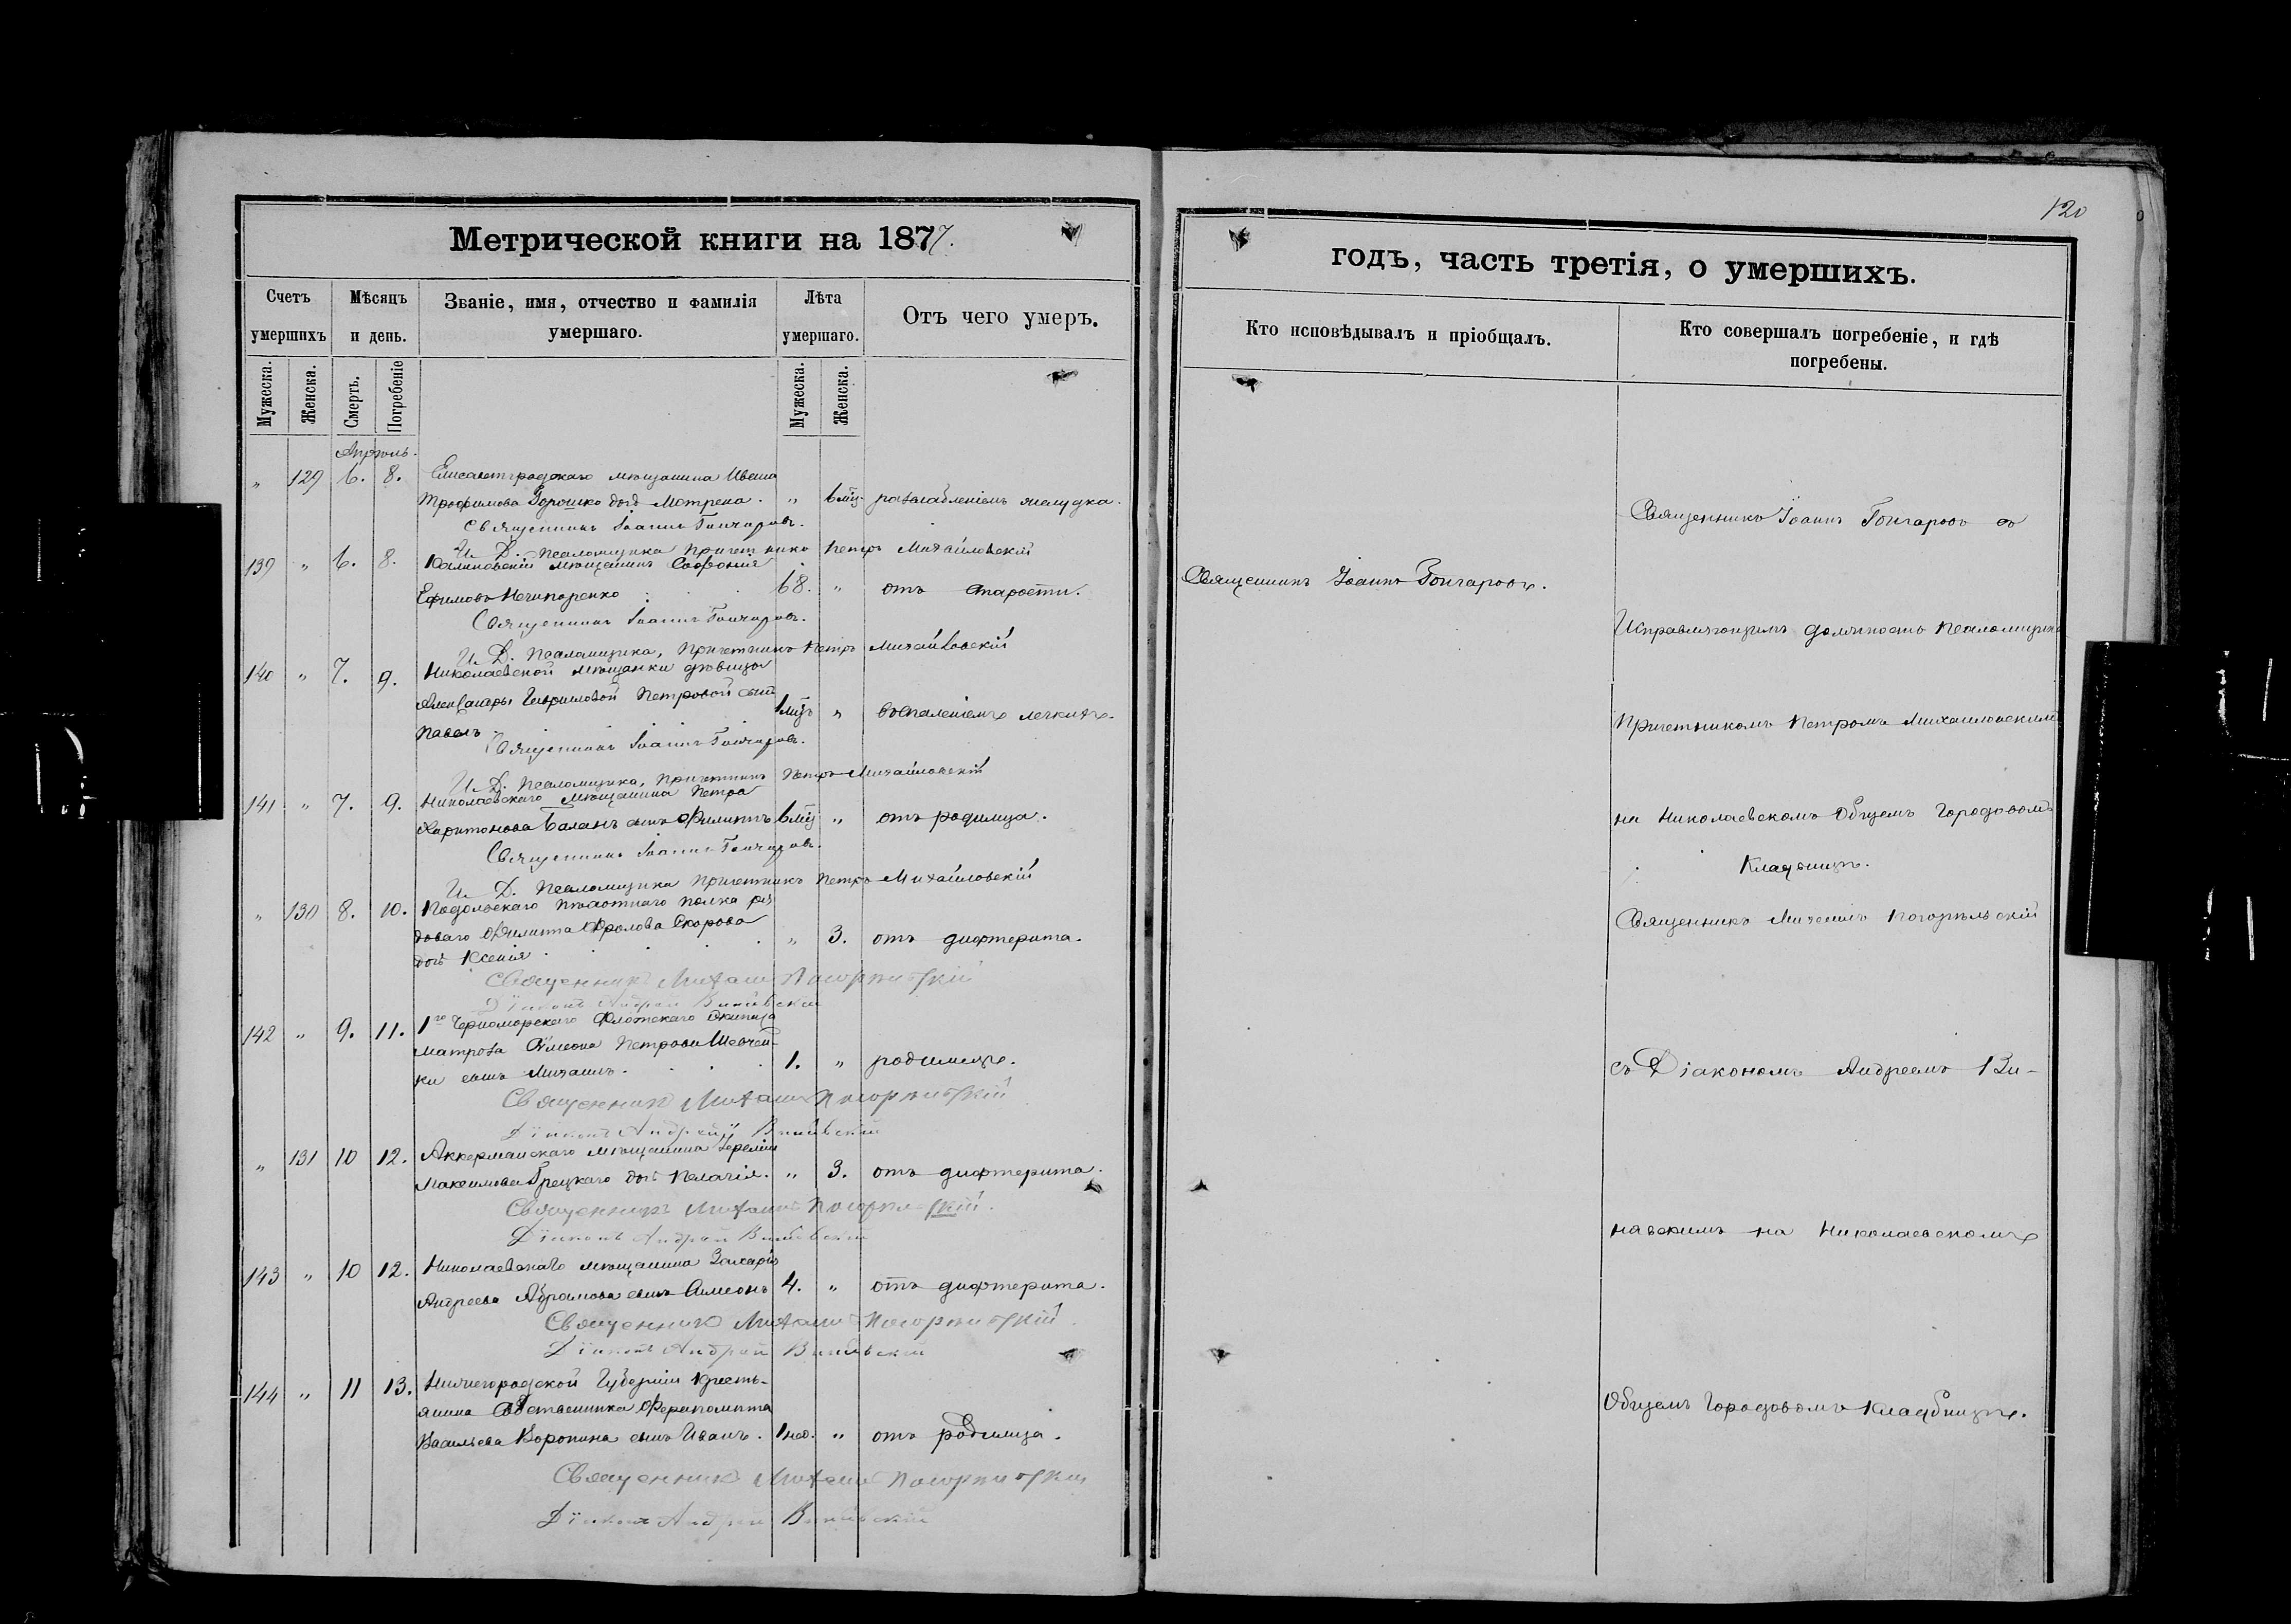 120
Метрической книги на 1877.
годъ, часть третія, о умершихъ.
Счетъ умершихъ
Мѣсяцъ и день.
Званіе, имя, отчество и фамилія умершаго.
Лѣта умершаго.
Отъ чего умеръ.
Кто исповѣдывалъ и пріобщалъ.
Кто совершалъ погребеніе, и гдѣ погребены.
Мужеска.
Женска.
Смерть.
Погребеніе
Мужеска.
Женска.
Апрѣль.
„ 129 6. 8. Елисаветградскаго мѣщанина Ивана
Трофимова Горошко дочь Мотрена. „ 6 мѣц. разслабленіемъ желудка.
Священникъ Іоаннъ Гончаровъ.
И. Д. Псаломщика Причетникъ Петръ Михайловскій
139 „ 6. 8. мѣщанинъ Софроній
Ефимовъ Нечипоренко 68. „ отъ старости.
Священникъ Іоаннъ Гончаровъ.
И. Д. Псаломщика, Причетникъ Петръ Михайловскій
140 „ 7. 9. Николаевской мѣщанки дѣвицы
Александры Гавриловой Петровой сынъ
Павелъ 1 мѣц „ воспаленіемъ легкихъ.
Священникъ Іоаннъ Гончаровъ.
И. Д. Псаломщика, Причетникъ Петръ Михайловскій
141 „ 7. 9. Николаевскаго мѣщанина Петра
Харитонова Баланъ сынъ Филиппъ 6 мѣц „ отъ родимца.
Священникъ Іоаннъ Гончаровъ.
И. Д. Псаломщика Причетникъ Петръ Михайловскій
„ 130 8. 10. Подольскаго пѣхотнаго полка ря
доваго Филиппа Фролова Скорова
дочь Ксенія „ 3. отъ дифтерита.
Священникъ Михаилъ Погорѣльскій
Діаконъ Андрей
142 „ 9. 11. 1го Черноморскаго Флотскаго Экипажа
матроза Симеона Петрова Шевчен-
ки сынъ Михаилъ. 1. „ родимцемъ.
Священникъ Михаилъ Погорѣльскій
Діаконъ Андрей
„ 131 10 12. Аккерманскаго мѣщанина Іереміи
Максимова Грецкаго дочь Пелагія. „ 3. отъ дифтерита.
Священникъ Михаилъ Погорѣльскій.
Діаконъ Андрей
143 „ 10 12. Николаевскаго мѣщанина Захарія
Андреева Абрамова сынъ Симеонъ 4. „ отъ дифтерита.
Священникъ Михаилъ Погорѣльскій
Діаконъ Андрей
144 „ 11 13. Нижегородской Губерніи кресть-
янина Собственника Ферапонта
Васильева Воронина сынъ Иванъ. 1 нед. „ отъ родимца.
Священникъ Михаилъ Погорѣльскій
Діаконъ Андрей
Священникъ Іоаннъ Гончаровъ.
Священникъ Іоаннъ Гончаровъ съ
Исправляющимъ должность Псаломщика
Причетникомъ Петромъ Михайловскимъ
на Николаевскомъ Общемъ Городовомъ
Кладбищѣ.
Священникъ Михаилъ Погорѣльскій
съ Діакономъ Андреемъ Ви-
навскимъ на Николаевскомъ
Общемъ Городовомъ Кладбищѣ.